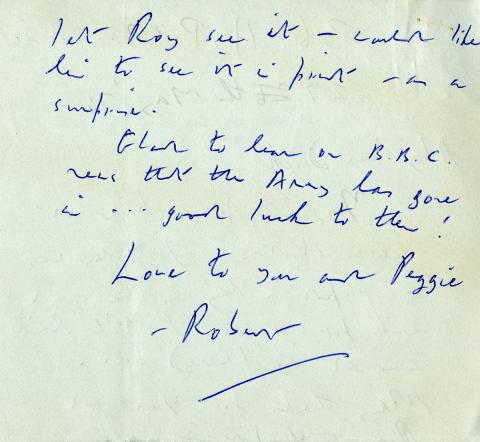 let Roy see it – would like
him to see it in print – as a
surprise.
Glad to hear on B.B.C.
news that the Army has gone
in ... good luck to them!
Love to you and Peggie
– Robert